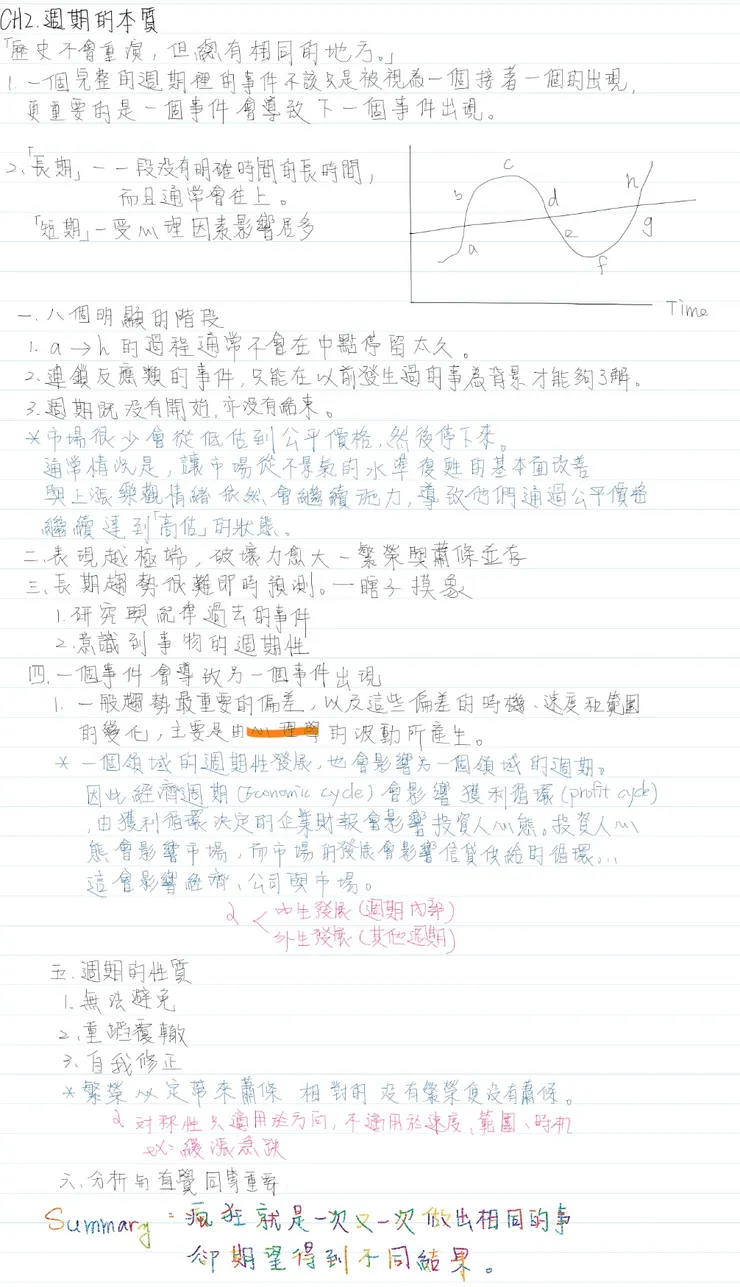 CH2.週期的本質
「歷史不會重演，但總有相同的地方。」
1.一個完整的週期裡的事件不該只是被視為一個接著一個的出現，
更重要的是一個事件會導致下一個事件出現。
2.「長期」－一段沒有明確時間的長時間，
而且通常會往上。
「短期」－受心理因素影響居多
a
b
c
d
e
f
g
h
Time
一.八個明顯的階段
1.a→h的過程通常不會在中點停留太久。
2.連鎖反應類的事件，只能在以前發生過的事為背景才能夠了解。
3.週期既沒有開始，亦沒有結束。
*市場很少會從低估到公平價格，然後停下來。
通常情況是，讓市場從不景氣的水準復甦的基本面改善
與上漲樂觀情緒依然會繼續施力，導致他們通過公平價格
繼續達到「高估」的狀態。
二.表現越極端，破壞力愈大－繁榮與蕭條並存
三.長期趨勢很難即時預測。－瞎子摸象
1.研究與紀律過去的事件
2.意識到事物的週期性
四.一個事件會導致另一個事件出現
1.一般趨勢最重要的偏差，以及這些偏差的時機、速度和範圍
的變化，主要是由心理學的波動所產生。
*一個領域的週期性發展，也會影響另一個領域的週期。
因此經濟週期(Economic cycle)會影響獲利循環(profit cycle)
，由獲利循環決定的企業財報會影響投資人心態。投資人心
態會影響市場，而市場的發展會影響信貸供給的循環...
這會影響經濟、公司與市場。
α＜內生發展(週期內部)
外生發展(其他週期)
五.週期的性質
1.無法避免
2.重蹈覆轍
3.自我修正
*繁榮必定帶來蕭條 相對的 沒有繁榮便沒有蕭條。
α 對稱性只適用於方向，不適用於速度、範圍、時机
ex:緩漲急跌
六.分析與直覺同等重要
Summary：瘋狂就是一次又一次做出相同的事
卻期望得到不同結果。